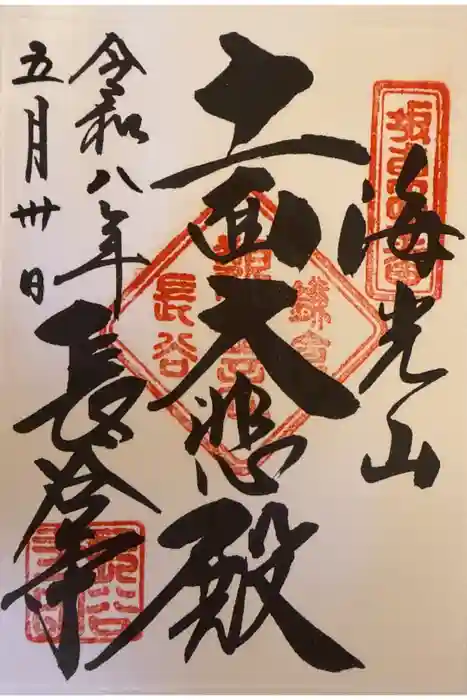 坂東四番
海光山
十一面大悲殿
鎌倉
長谷
令和八年
長谷寺
五月卅日